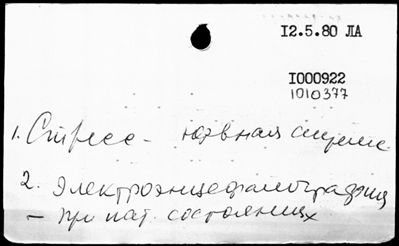 12.5.80 ЛА
I000922
1010377
1. Стресс - нервная система
2. Электроэнцефалография
- при пат. состояниях